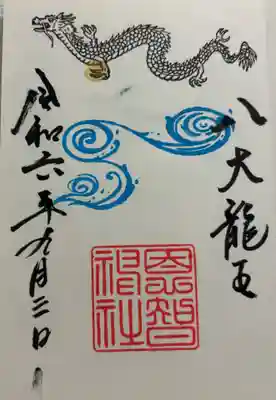 八大龍王
恩智神社
令和六年九月三日